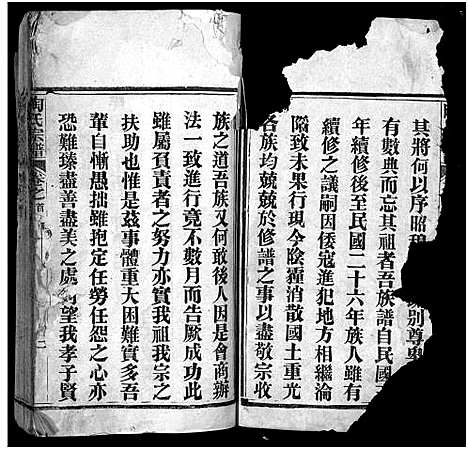 其將何以序昭穆 別尊卑
有數典而忘其祖者吾族譜自民國
年續修後至民國二十六年族人雖有
續修之議嗣因倭寇進犯地方相繼淪
陷致未果行現今陰霾消散國土重光
各族均兢兢於修譜之事以盡敬宗收
族之道吾族又何敢後人因是會商辦
法一致進行竟不數月而告厥成功此
雖屬負責者之努力亦實我祖我宗之
扶助也惟是茲事體重大困難實多吾
輩自慚愚拙雖抱定任勞任怨之心亦
恐難臻盡善盡美之處 望我孝子賢
陶氏宗譜 卷之首 二